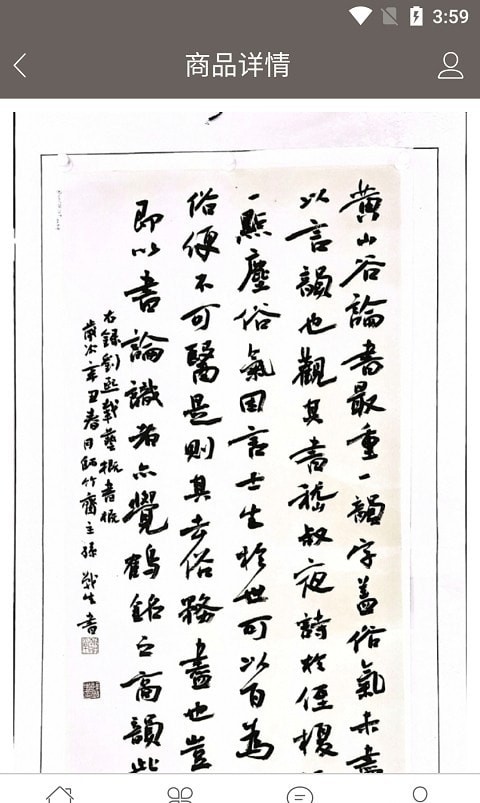 3:59
商品详情
黄山谷論書最重一韻字蓋俗氣未盡
以言韻也觀其書嵇叔夜詩於侄榎
一點塵俗氣因言士生於世可以百為
俗便不可醫是則其去俗務盡也豈
即以書論識者亦覺鶴銘之高韻此
右錄劉熙載藝概書概
歲次辛丑春月銘竹齋主孫戰生書